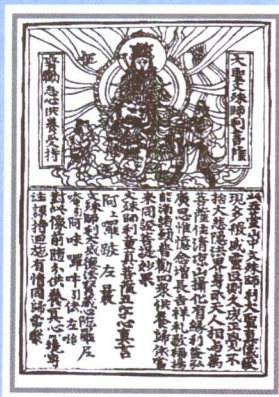 大聖文殊師利菩薩
普勸志心供養受持
此五臺山中文殊師利大聖真儀變
現多般威靈叵測久成正覺不
捨大悲隱法界身示天人相與萬
菩薩住清涼山攝化有緣利益弘
廣思惟憶念增長吉祥礼敬稱揚
能滿諸願普勸四眾供養歸依當
來同證菩提妙果
文殊師利童真菩薩五字心真言
阿上囉跛左曩
文殊師利大威德法寶藏心陀羅尼
唵引阿味囉吽引佉左咯
對此像前隨分供養冥心緘口專
注課持迴施有情同歸常樂